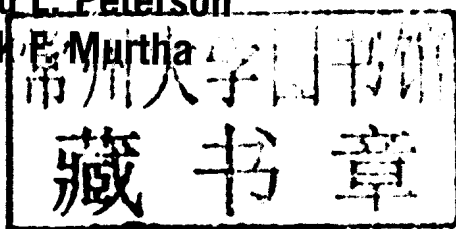 L. Peterson
P. Murtha
常州大学图书馆
藏书章